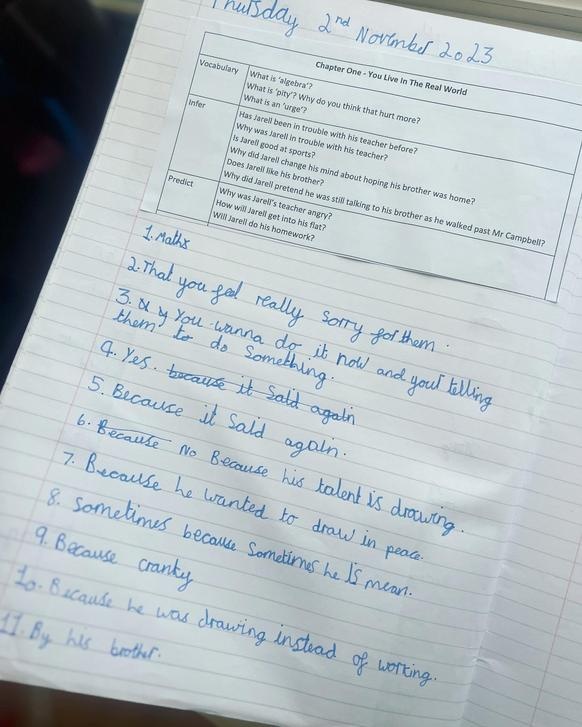 Thursday 2nd November 2023
Chapter One - You Live In The Real World
Vocabulary
What is 'algebra'?
What is 'pity'? Why do you think that hurt more?
What is an 'urge'?
Infer
Has Jarell been in trouble with his teacher before?
Why was Jarell in trouble with his teacher?
Is Jarell good at sports?
Why did Jarell change his mind about hoping his brother was home?
Does Jarell like his brother?
Why did Jarell pretend he was still talking to his brother as he walked past Mr Campbell?
Predict
Why was Jarell's teacher angry?
How will Jarell get into his flat?
Will Jarell do his homework?
1. Maths
2. That you feel really sorry for them.
3. You wanna do it now and your telling
them to do something.
4. Yes. because it said again
5. Because it said again.
6. Because No Because his talent is drawing.
7. Because he wanted to draw in peace.
8. Sometimes because sometimes he is mean.
9. Because cranky
10. Because he was drawing instead of working.
11. By his brother.